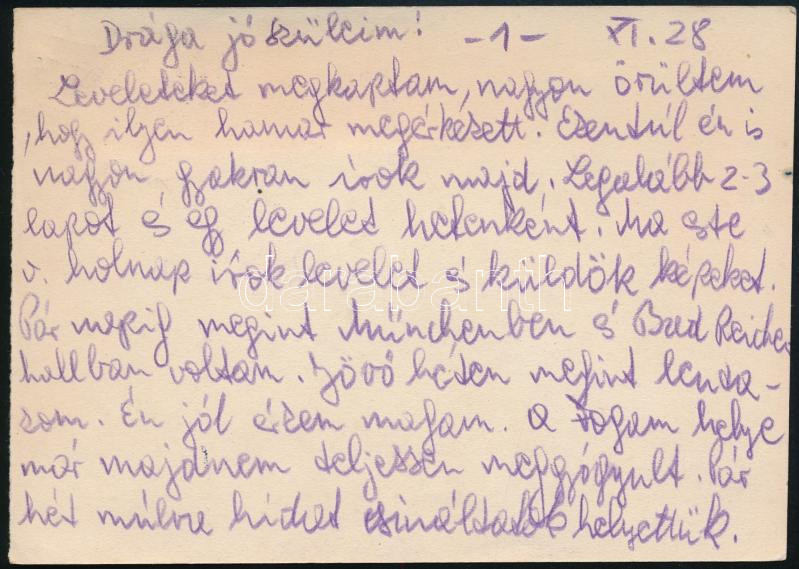 Drága jó szüleim! -1- XI. 28
Leveleteket megkaptam, nagyon örültem
, hogy ilyen hamar megérkezett. Ezentúl én is
nagyon gyakran írok majd. Legalább 2-3
lapot és egy levelet hetenként. Ma este
v. holnap írok levelet és küldök képeket.
Pár napig megint Münchenben és Bad Reichen
hallban voltam. Jövő héten megint leuta-
zom. Én jól érzem magam. A fogam helye
már majdnem teljessen meggyógyult. Pár
hét múlva hidat csináltatok helyettük.
darabanth